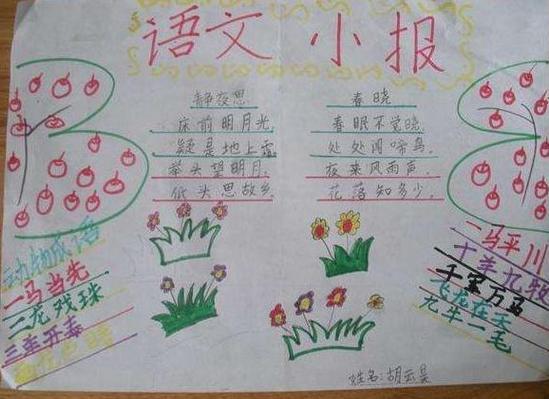 语文小报
静夜思
床前明月光
疑是地上霜
举头望明月
低头思故乡
春晓
春眠不觉晓
处处闻啼鸟
夜来风雨声
花落知多少
动物成语
一马当先
二龙戏珠
三羊开泰
一马平川
十羊九牧
千军万马
飞龙在天
九牛一毛
姓名:胡云昊